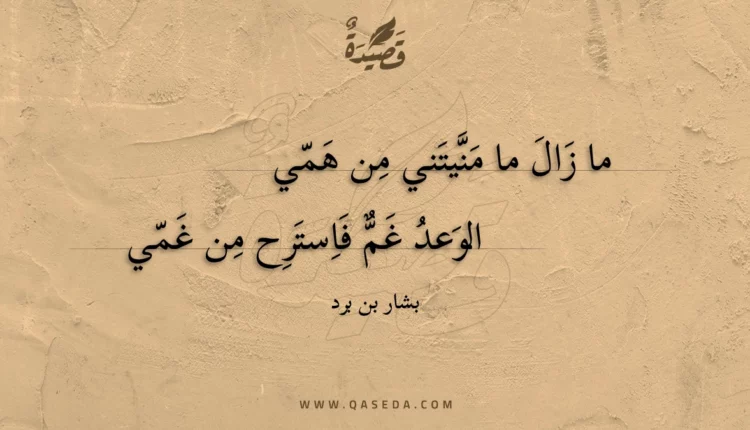 قَصِيْدَةٌ
ما زَالَ ما مَنَّيتَني مِن هَمّي
الوَعدُ غَمٌّ فَاِستَرِح مِن غَمّي
بشار بن برد
WWW.QASEDA.COM